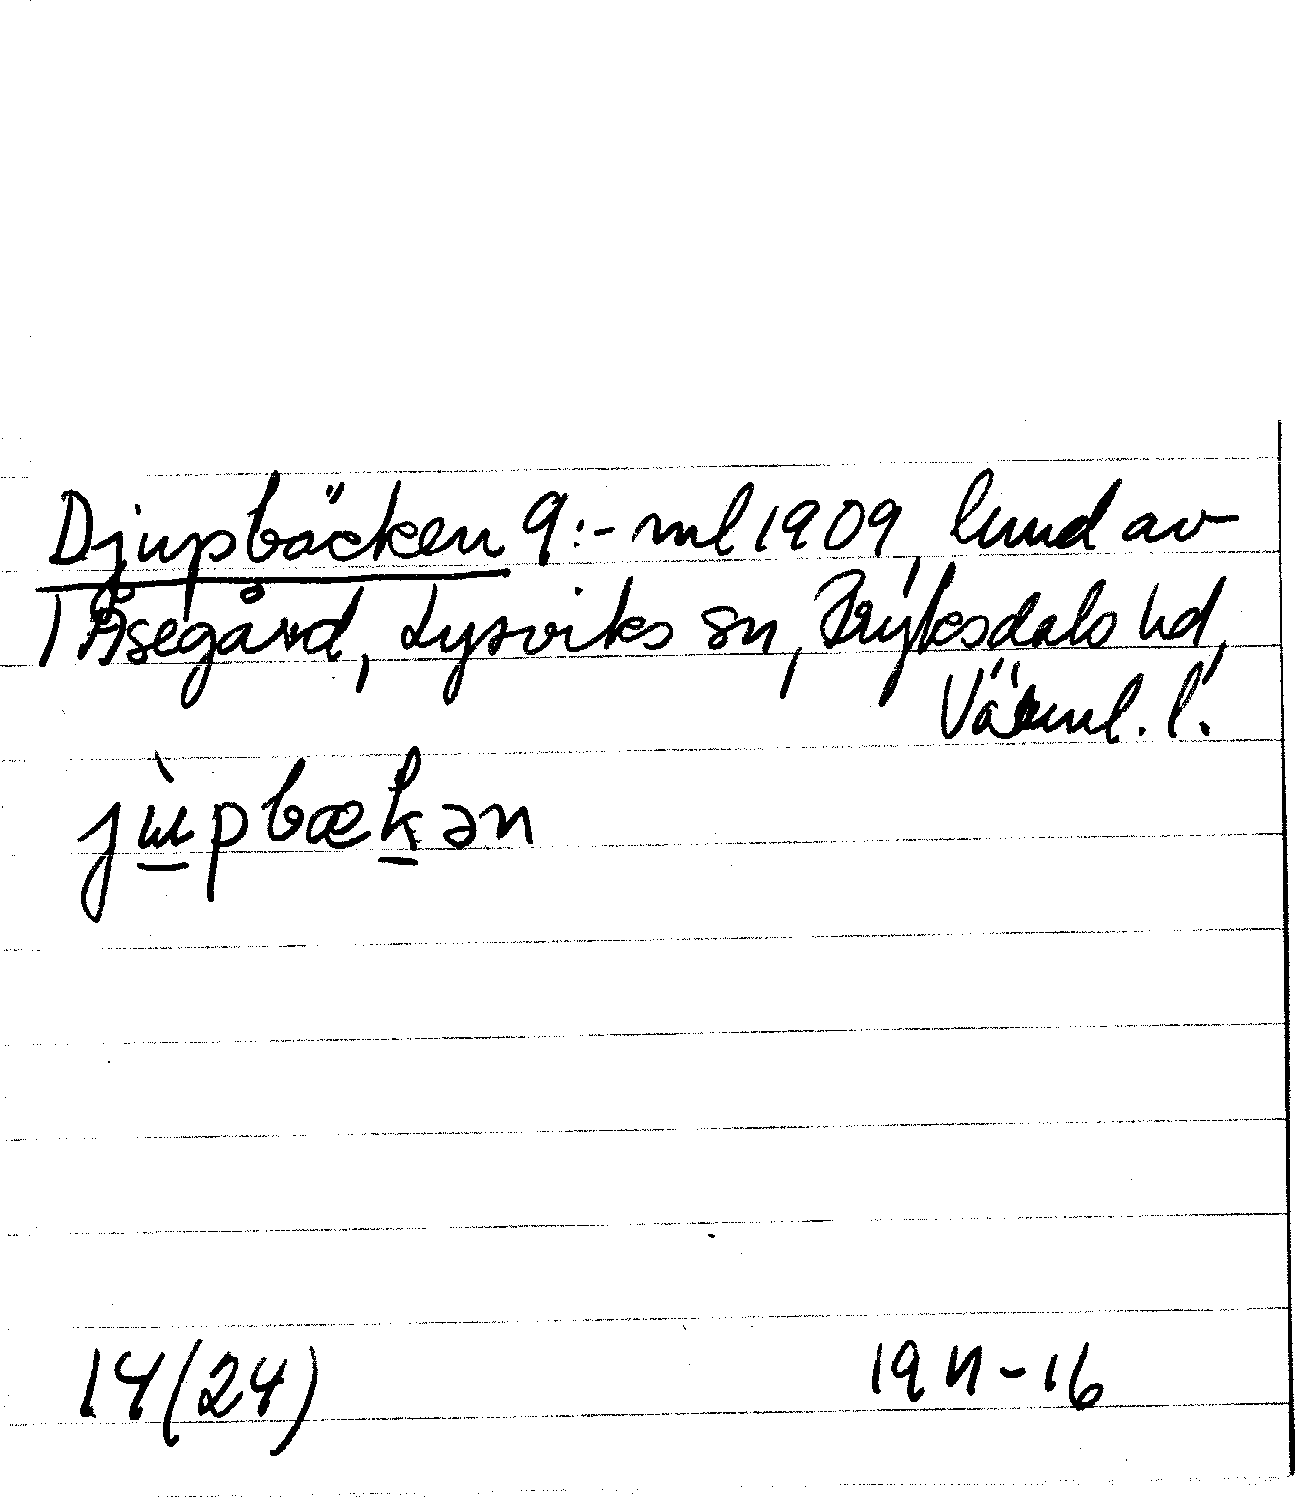 Djupbäcken 9:- ml 1909, lund av
1 Åsegård, Lysviks sn, Fryksdals hd,
Värml. l.
jùpbækən
14(24) 1911-16